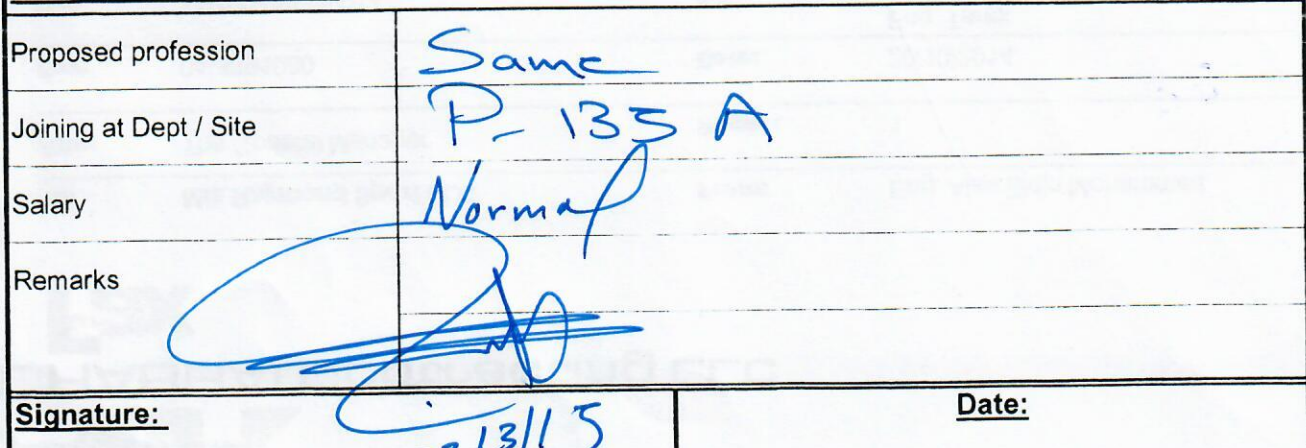 Proposed profession Same
Joining at Dept / Site P- 135 A
Salary Normal
Remarks
Signature: Date: